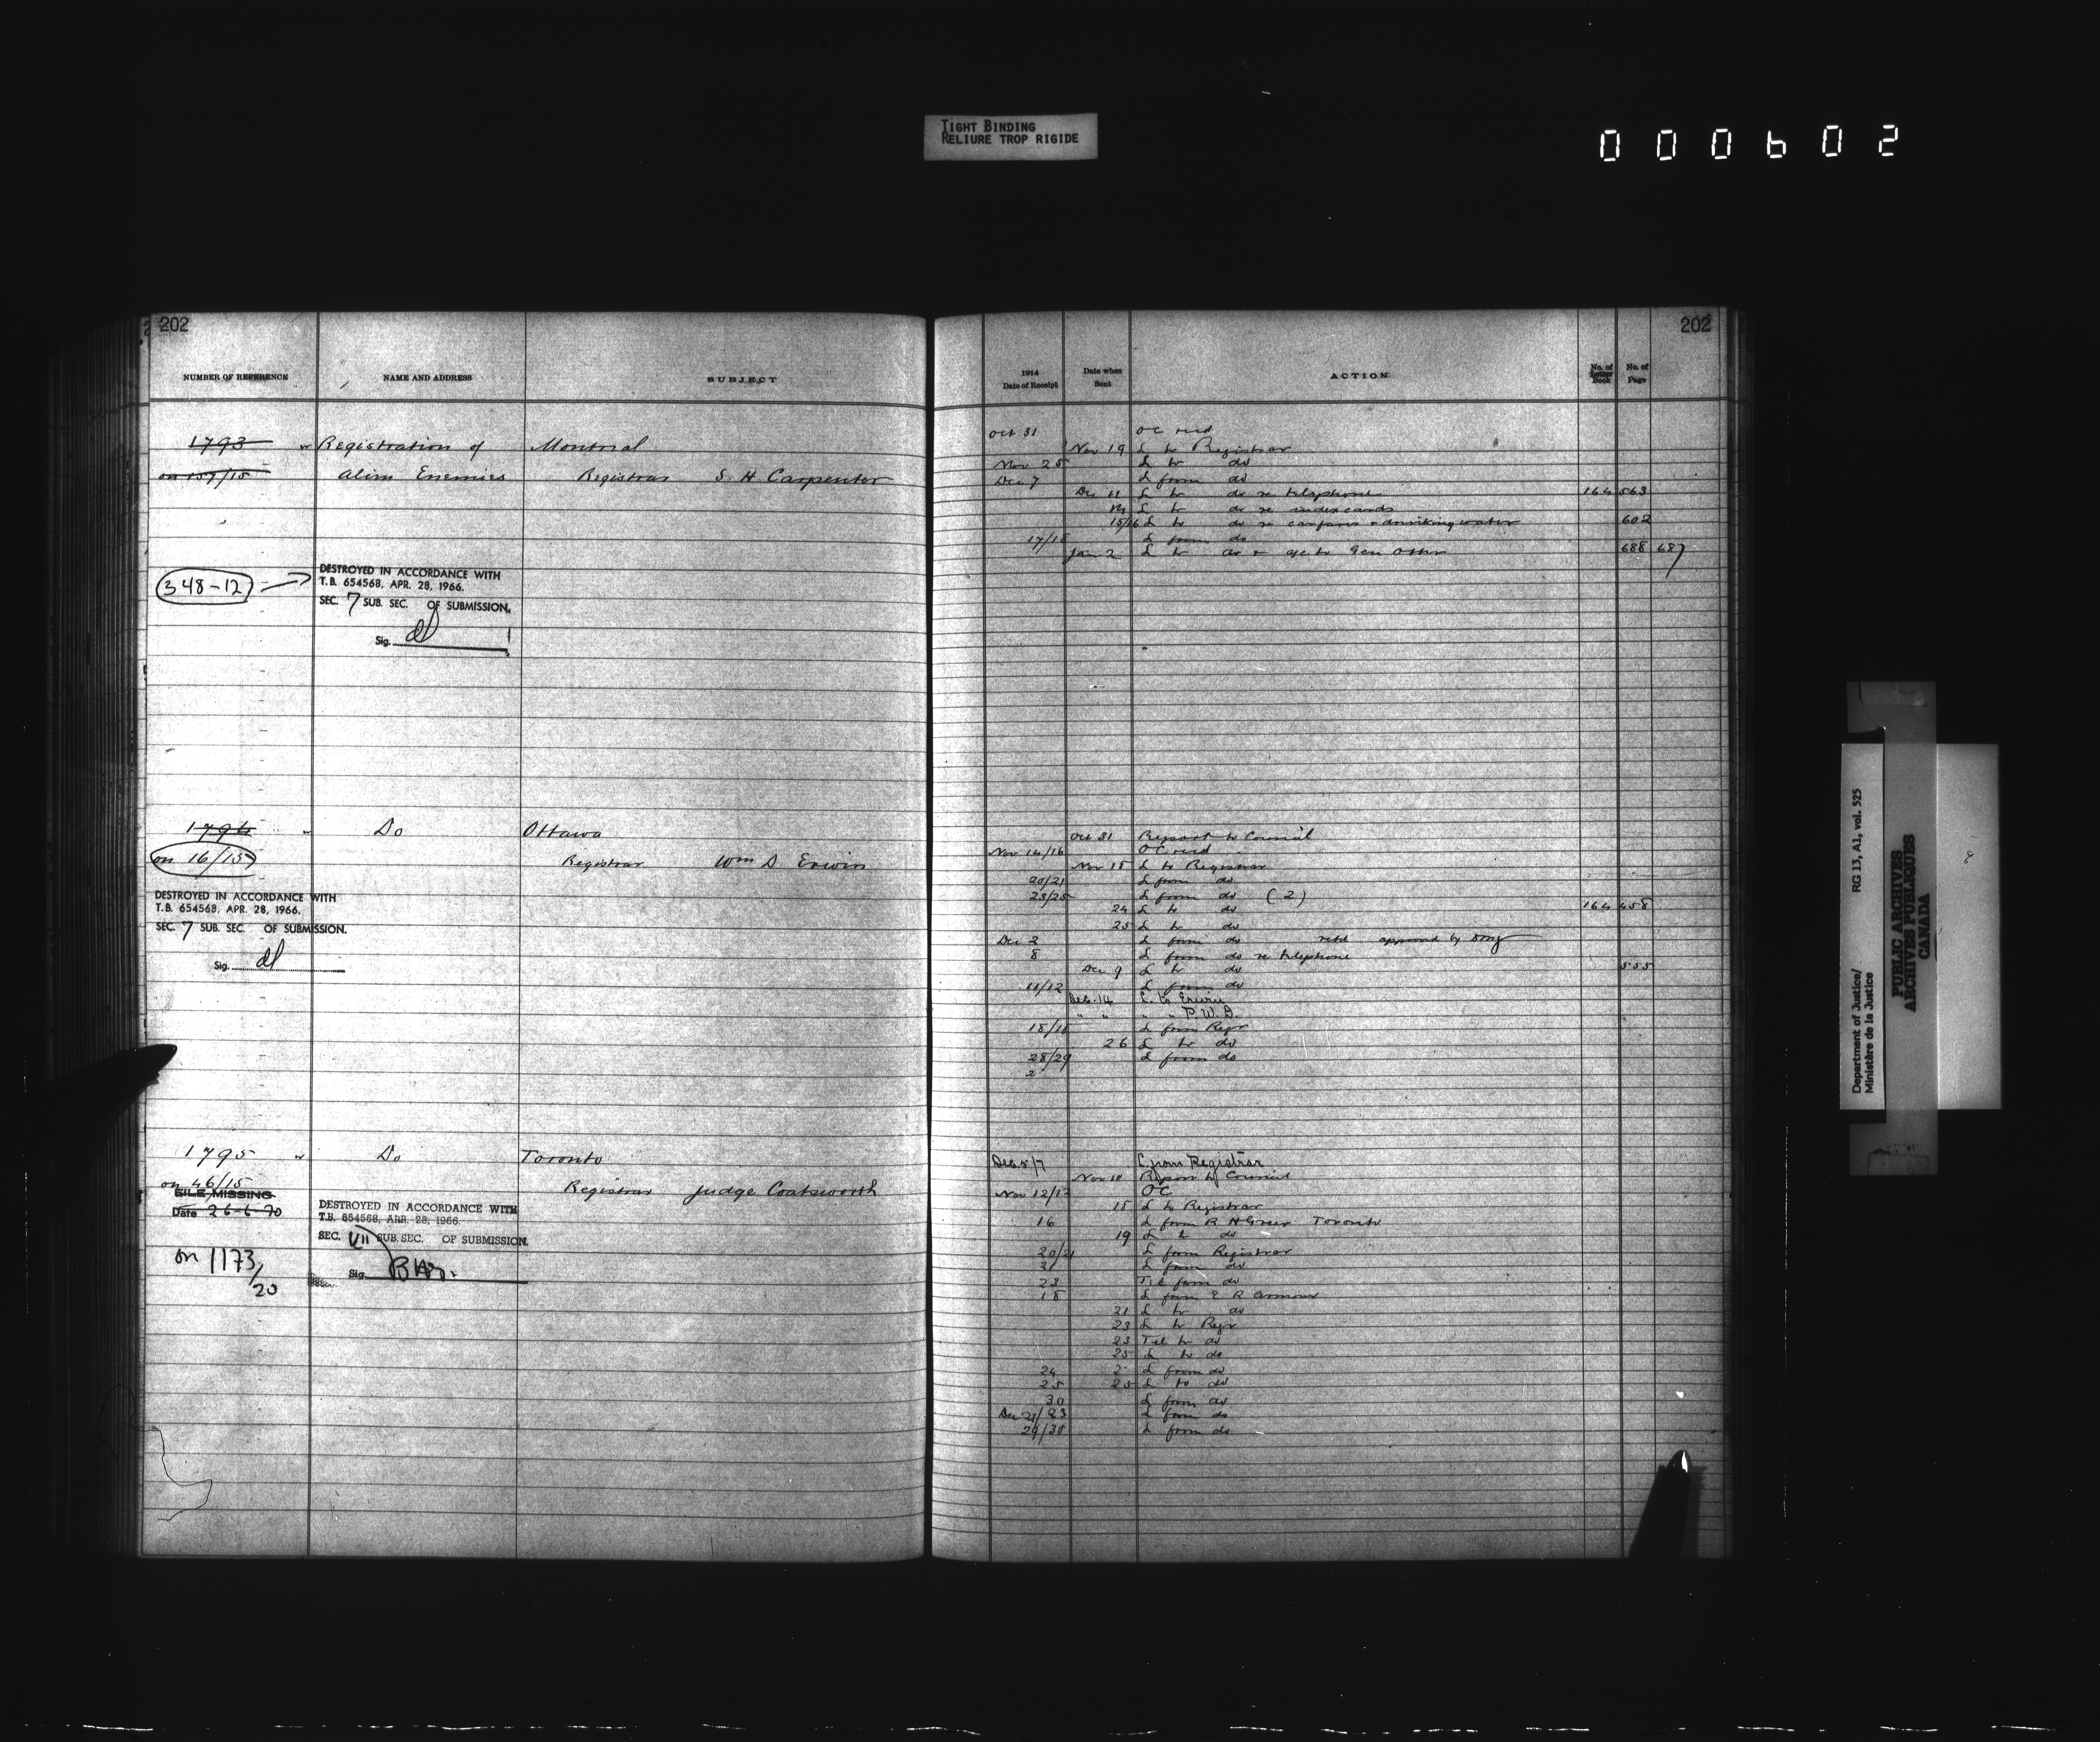 TIGHT BINDING
RELIURE TROP RIGIDE
000602
202
NUMBER OF REFERENCE NAME AND ADDRESS SUBJECT
1793 Registration of Montreal
on 157/15 Alien Enemies Registrar S. H. Carpenter
348-12
DESTROYED IN ACCORDANCE WITH
T.B. 654568, APR. 28, 1966.
SEC. 7 SUB. SEC. OF SUBMISSION.
Sig.
1794 Do Ottawa
on 16/15 Registrar Wm D Erwin
DESTROYED IN ACCORDANCE WITH
T.B. 654568, APR. 28, 1966.
SEC. 7 SUB. SEC. OF SUBMISSION.
Sig.
1795 Do Toronto
on 46/15 Registrar Judge Coatsworth
FILE MISSING
Date 26-6-70
DESTROYED IN ACCORDANCE WITH
T.B. 654568, APR. 28, 1966.
SEC. VII SUB. SEC. OF SUBMISSION.
Sig.
on 1173/20
202
1914 Date of Receipt Date when Sent ACTION No. of Letter Book No. of Page
Oct 31 OC recd
Nov 19 L to Registrar
Nov 25 L to do
Dec 7 L from do
Dec 11 L to do re telephone 164 563
L to do re index cards
15/16 L to do re carfares & drinking water 602
L from do
Jan 2 L to do 688 687
Oct 31 Report to Council
Nov 14/16 OC recd
Nov 18 L to Registrar
20/21 L from do
23/25 L from do (2)
24 L to do 164 458
25 L to do
Dec 2 L from do retd approved by
8 L from do re telephone
Dec 9 L to do 555
11/12 L from do
Dec. 14 L. to Erwin
" " " " P.W.D.
L from Regr
26 L to do
28/29 L from do
2
Dec 5/7 L from Registrar
Nov 10 Report to Council
Nov 12/13 OC
18 L to Registrar
16 L from R H Greer Toronto
19 L to do
20/21 L from Registrar
21 L from do
23 Tel from do
18 L from E R Armour
21 L to do
23 L to Regr
23 Tel to do
25 L to do
24 L from do
25 25 L to do
30 L from do
Dec 21/23 L from do
29/30 L from do
Department of Justice/ RG 13, A1, vol. 525
Ministère de la Justice
PUBLIC ARCHIVES
ARCHIVES PUBLIQUES
CANADA